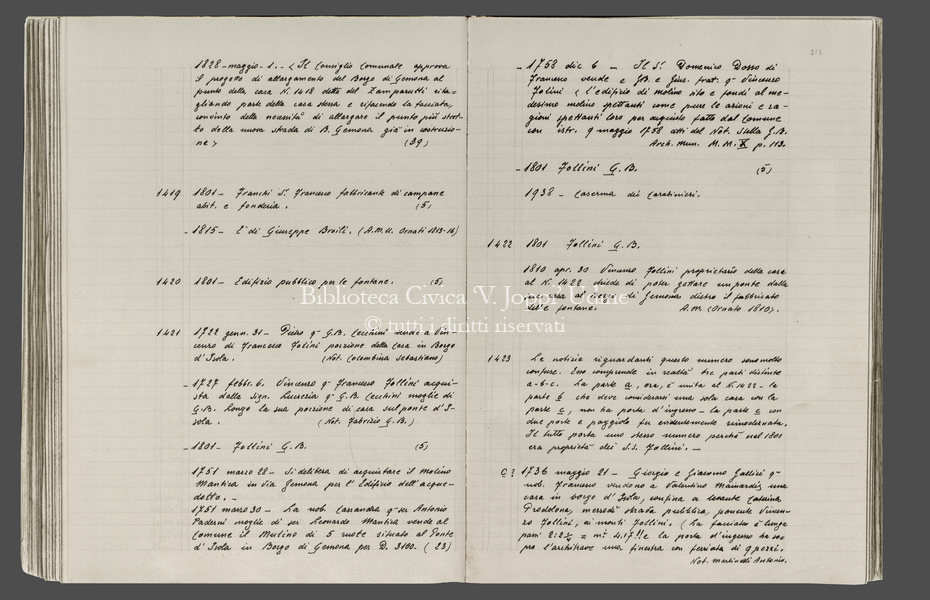 1828 - maggio - 1. - < Il Consiglio Comunale approva
il progetto di allargamento del Borgo di Gemona al
punto della casa N. 1418 detta del Zamparutti rita=
gliando parte della casa stessa e rifacendo la facciata,
convinto della necessità di allargare il punto più stret-
to della nuova strada di B. Gemona già in costruzio-
ne > (39)
1419 1801 - Franchi Sr. Francesco fabbricante di campane
abit. e fonderia. (5)
- 1815 - È di Giuseppe Broili. (A.M.U. Ornati 1813-16)
1420 1801 - Edifizio pubblico per le fontane. (5)
1421 1722 genn. 31 - Pietro q- G.B. Cecchini vende a Vin-
cenzo di Francesco Folini porzione della casa in Borgo
d'Isola. (Not. Colombina Sebastiano)
- 1727 febbr. 6. Vincenzo q- Francesco Follini acqui-
sta dalla Sign. Lucrezia q- G.B. Cecchini moglie di
G.B. Longo la sua porzione di casa sul ponte d'I-
sola. (Not. Fabrizio G.B.)
- 1801 - Follini G.B. (5)
1751 marzo 28 - Si delibera di acquistare il Molino
Mantica in Via Gemona per l'Edificio dell'acque-
dotto. -
1751 marzo 30 - La nob. Cassandra q- ser Antonio
Paderni moglie di ser Leonardo Mantica vende al
Comune il Mulino di 5 ruote situato al Ponte
d'Isola in Borgo di Gemona per D. 3100. (23)
- 1758 dic 6 - Il Sr. Domenico Dosso di
Francesco vende a GB. e Gius. frat. q- Vincenzo
Folini < l'edifizio di molino sito e fondi al me-
desimo molino spettanti come pure le azioni e ra-
gioni spettanti loro per acquisto fatto dal Comune
con istr. 9 maggio 1758 atti del Not. Stella G.B.
Arch. Mun. M.M. X p. 113.
- 1801 Follini G.B. (5)
1938 - Caserma dei Carabinieri.
1422 1801 Follini G.B.
1810 apr. 30 Vincenzo Follini proprietario della casa
al N. 1422 chiede di poter gettare un ponte dalla
al Borgo di Gemona dietro il fabbricato
fontane. A.M. (Ornato 1810).
Biblioteca Civica 'V. Joppi' Udine
© tutti i diritti riservati
1423 Le notizie riguardanti questo numero sono molto
confuse. Esso comprende in realtà tre parti distinte
a-b-c. La parte a, ora, è unita al N. 1422 - la
parte b che deve considerarsi una sola casa con la
parte c, non ha porta d'ingresso - la parte c con
due porte e poggiolo fu evidentemente rimodernata.
Il tutto porta uno stesso numero perchè nel 1801
era proprietà dei S.S. Follini. -
C? 1736 maggio 21 - Giorgio e Giacomo Gallici q-
nob. Francesco vendono a Valentino Mainardis una
casa in borgo d'Isola, confina a levante
mezzodì strada pubblica, ponente Vincen-
zo Follini, ai monti Follini. (La facciata è lunga
passi 2:2 = mt 4.17!! e la porta d'ingresso ha so-
pra l'architrave una finestra con ferriata di 9 pezzi.
Not. Martinelli Antonio.